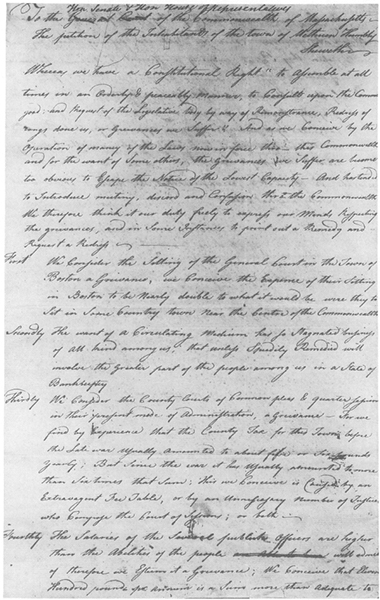 Hon. Senate & Hon. House of Representatives
To the General Court of the Commonwealth of Massachusetts
The petition of the Inhabitants of the town of Methuen Humbly
Sheweth
Whereas we have a Constitutional Right to Assemble at all
times in an Orderly & peaceably Manner, to Consult upon the Common
good: and Request of the Legislative Body by way of Remonstrance, Redress of
rongs done us, or Grievances we Suffer And as we Conceive by the
Operation of many of the Laws now in force this Commonwealth
and for the want of Some others, the Grievances we Suffer are become
too obvious to Escape the Notice of the Lowest Capacity And has tended
to Introduce mutiny, discord and Confusion thro' the Commonwealth
We therefore think it our duty freely to express our Minds Respecting
the grievances, and in Some Instances to point out a Remedy and
Request a Redress
First We Consider the Sitting of the General Court in the Town of
Boston a Grievance; we Conceive the Expence of their Sitting
in Boston to be Nearly double to what it would be were they to
Sit in Some Country town near the Center of the Commonwealth
Secondly The want of a Circulating Medium has so Stagnated business
of all kind among us, that unless Speedily Remedied will
involve the Greater part of the people among us in a State of
Bankruptcy
Thirdly We Consider the County Courts of Common pleas & quarter Sessions
in their present mode of Administration, a Grievance For we
find by Experience that the County Tax for this Town before
the late war Usually Amounted to about fifty or pounds
Yearly; But Since the war it has Usually amounted to more
than Six times that Sum; this we Conceive is Caused by an
Extravagant Fee Table, or by an Unnecessary Number of Justices
who Compose the Court of Sessions; or both
Fourthly The Salaries of the publick Officers are higher
than the Abilities of the people will admit
of therefore we Esteem it a Grievance; We Conceive that Eleven
Hundred pounds per annum is a Sum more than Adequate to